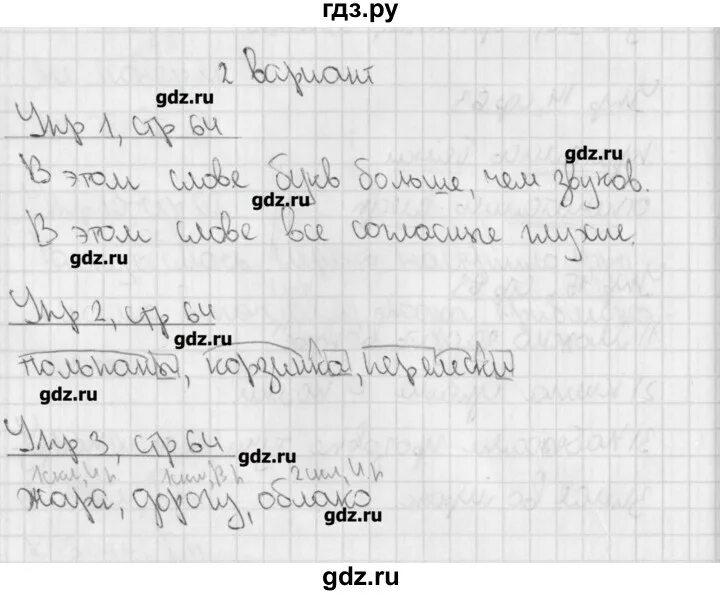 гдз.ру
2 вариант
gdz.ru
Упр 1, стр 64
gdz.ru
В этом слове букв больше, чем звуков.
gdz.ru
В этом слове все согласные глухие.
gdz.ru
Упр 2, стр 64
gdz.ru
тюльпаны, корзинка, перелески
gdz.ru
Упр 3, стр 64
gdz.ru
1скл, И р 1скл, В р 2скл, И р
жара, дорогу, облако
gdz.ru
gdz.ru